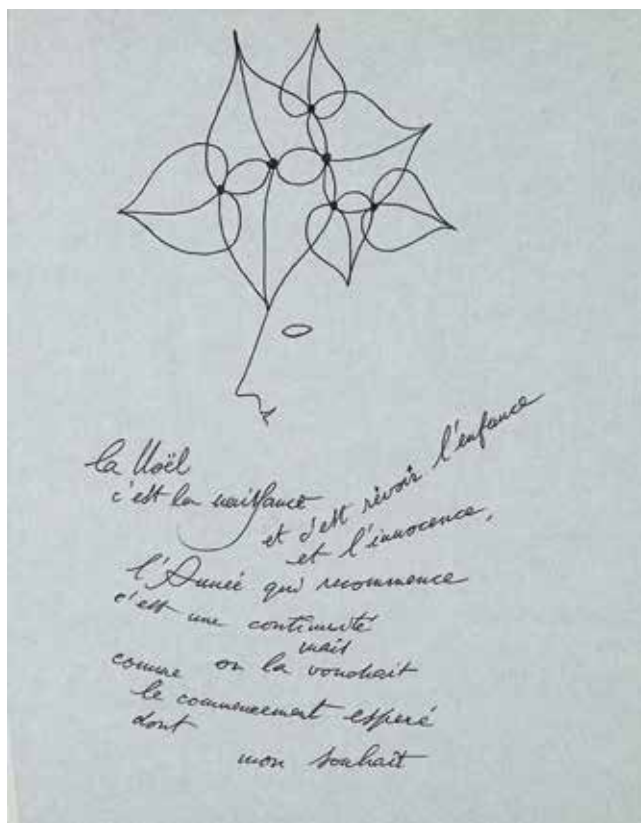 la Noël
c'est la naissance
et c'est revoir l'enfance
et l'innocence,
l'Année qui recommence
c'est une continuité
mais
comme on la voudrait
le commencement espéré
dont
mon souhait